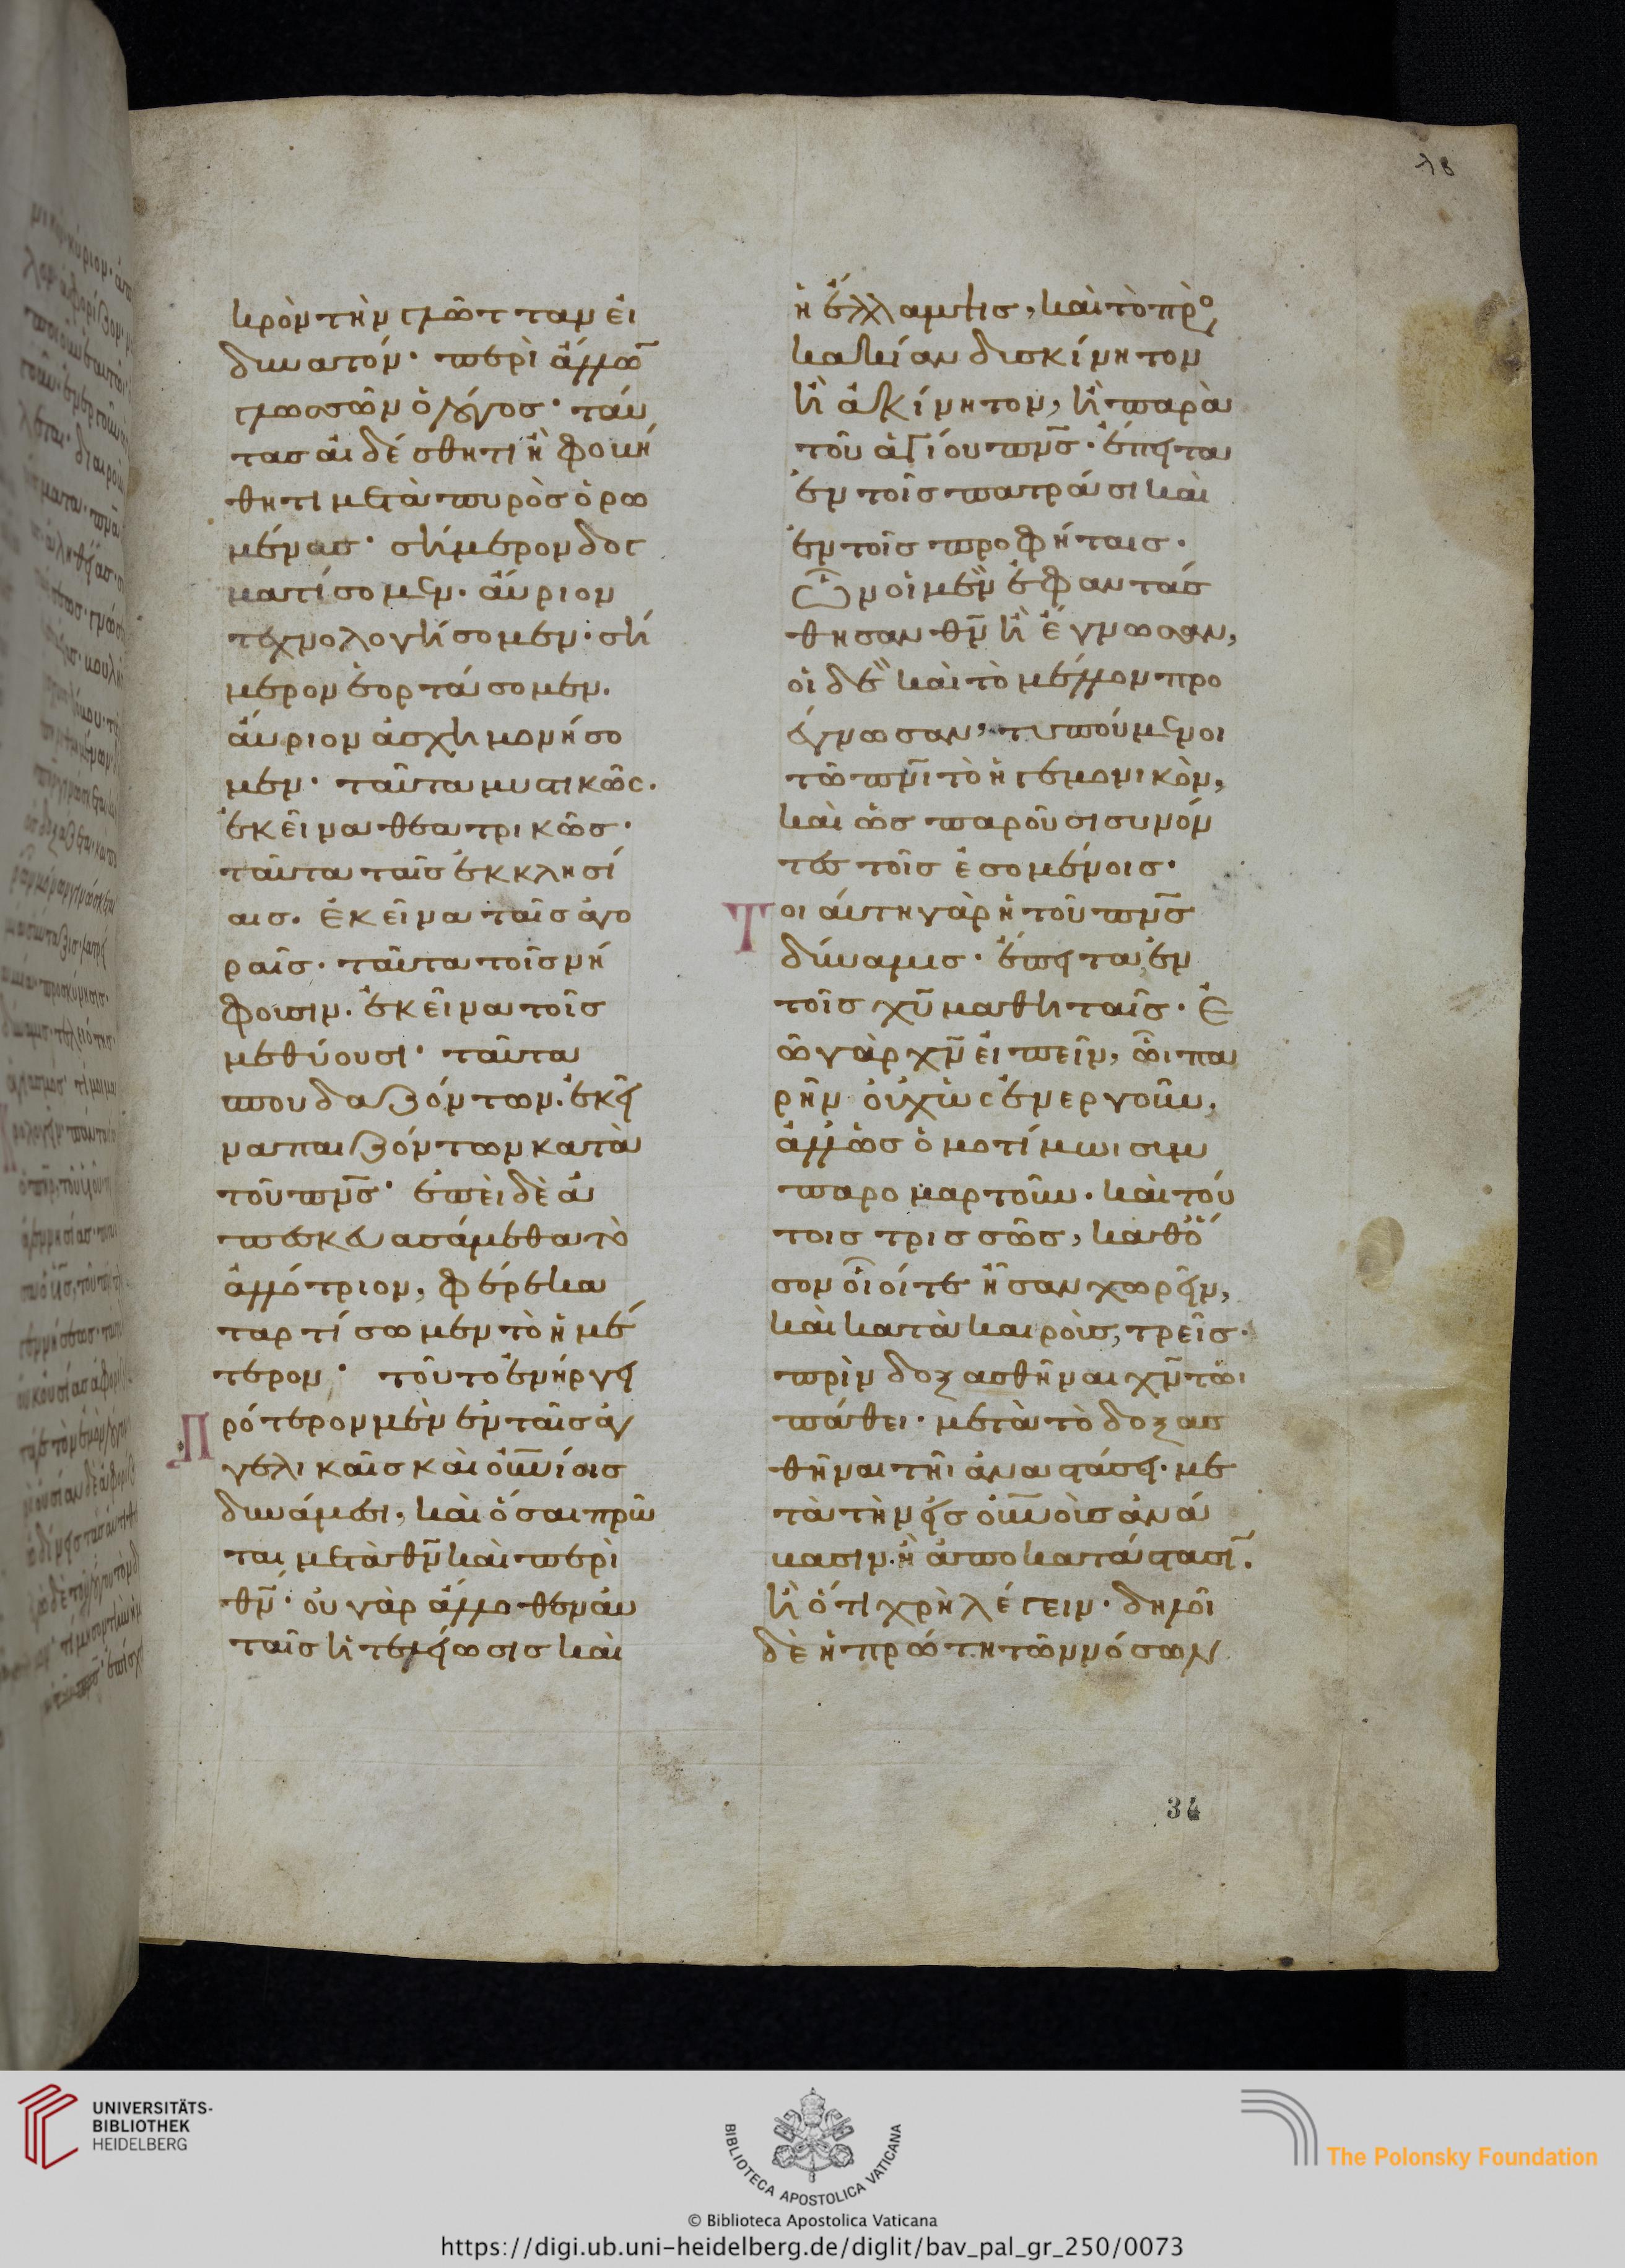 κρὸν τὴν γλῶτταν εἰ
δυνατόν· περὶ ἄλλω̅
γλωσσῶν ὁ λόγος· ταύ
τας αἰδέσθητι ἢ φοβή
θητι μετὰ πυρὸς ὁρω
μένας· σήμερον δογ
ματίσομεν· αὔριον
τεχνολογήσομεν· σή
μερον ἑορτάσομεν·
αὔριον ἀσχημονήσο
μεν· ταῦτα μυστικῶς·
ἐκεῖνα θεατρικῶς·
ταῦτα ταῖς ἐκκλησί
αις· ἐκεῖνα ταῖς ἀγο
ραῖς· ταῦτα τοῖς νή
φουσιν· ἐκεῖνα τοῖς
μεθύουσι· ταῦτα
σπουδαζόντων· ἐκεῖ
να παιζόντων κατὰ
τοῦ πν̅ς· ἐπεὶ δὲ ἀ
πεσκευασάμεθα τὸ
ἀλλότριον, φέρε κα
ταρτίσωμεν τὸ ἡμέ
τερον· τοῦτο ἐνήργει
Πρότερον μὲν ἐν ταῖς ἀγ
γελικαῖς καὶ οὐν̅ίοις
δυνάμεσι, καὶ ὅσαι πρῶ
ται μετὰ θν̅ καὶ περὶ
θν̅· οὐ γὰρ ἄλλοθεν αὐ
ταῖς ἡ τελείωσις καὶ
ἡ ἔλλαμψις, καὶ τὸ πρὸς
κακίαν δυσκίνητον
ἢ ἀκίνητον, ἢ παρὰ
τοῦ ἁγίου πν̅ς· ἔπειτα
ἐν τοῖς πατράσι καὶ
ἐν τοῖς προφήταις·
Ὧν οἱ μὲν ἐφαντάσ
θησαν θν̅ ἢ ἔγνωσαν,
οἱ δὲ καὶ τὸ μέλλον προ
έγνωσαν, τυπούμενοι
τῶ πνι̅ τὸ ἡγεμονικὸν,
καὶ ὡς παροῦσι συνόν
τες τοῖς ἐσομένοις·
Τοιαύτη γὰρ ἡ τοῦ πν̅ς
δύναμις· ἔπειτα ἐν
τοῖς χυ̅ μαθηταῖς· Ἐ
ῶ γὰρ χν̅ εἰπεῖν, ὧι πα
ρῆν οὐχ ὡς ἐνεργοῦν,
ἀλλ' ὡς ὁμοτίμωι συμ
παρομαρτοῦν· καὶ τού
τοις τρισσῶς, καθό
σον οἷοί τε ἦσαν χωρεῖν,
καὶ κατὰ καιροὺς, τρεῖς·
πρὶν δοξασθῆναι χν̅ τῶι
πάθει· μετὰ τὸ δοξασ
θῆναι τῆι ἀναστάσει· με
τὰ τὴν εἰς οὐν̅οὺς ἀνά
βασιν· ἢ ἀποκατάστασι̅·
ἢ ὅ τι χρὴ λέγειν· δηλοῖ
δὲ ἡ πρώτη τῶν νόσων
34
UNIVERSITÄTS-
BIBLIOTHEK
HEIDELBERG
BIBLIOTECA APOSTOLICA VATICANA
The Polonsky Foundation
© Biblioteca Apostolica Vaticana
https://digi.ub.uni-heidelberg.de/diglit/bav_pal_gr_250/0073